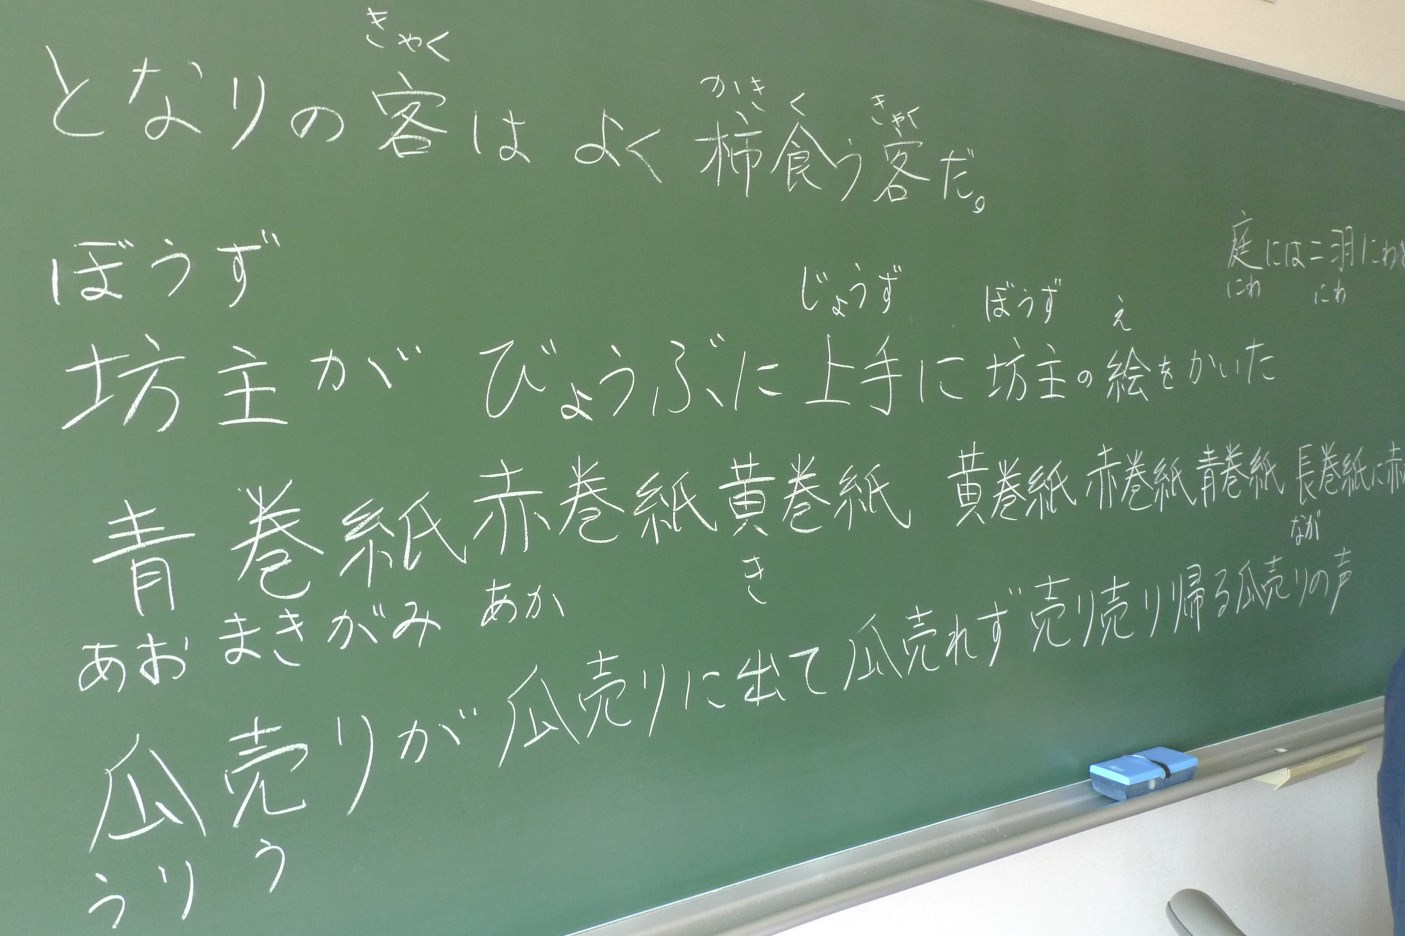 きゃく
となりの客はよく柿食う客だ。
かき く きゃく
ぼうず
じょうず ぼうず え
坊主がびょうぶに上手に坊主の絵をかいた
庭には二羽にわ
にわ にわ
青巻紙赤巻紙黄巻紙 黄巻紙赤巻紙青巻紙 長巻紙に赤
あお まきがみ あか き なが
瓜売りが瓜売りに出て瓜売れず売り売り帰る瓜売りの声
うり う